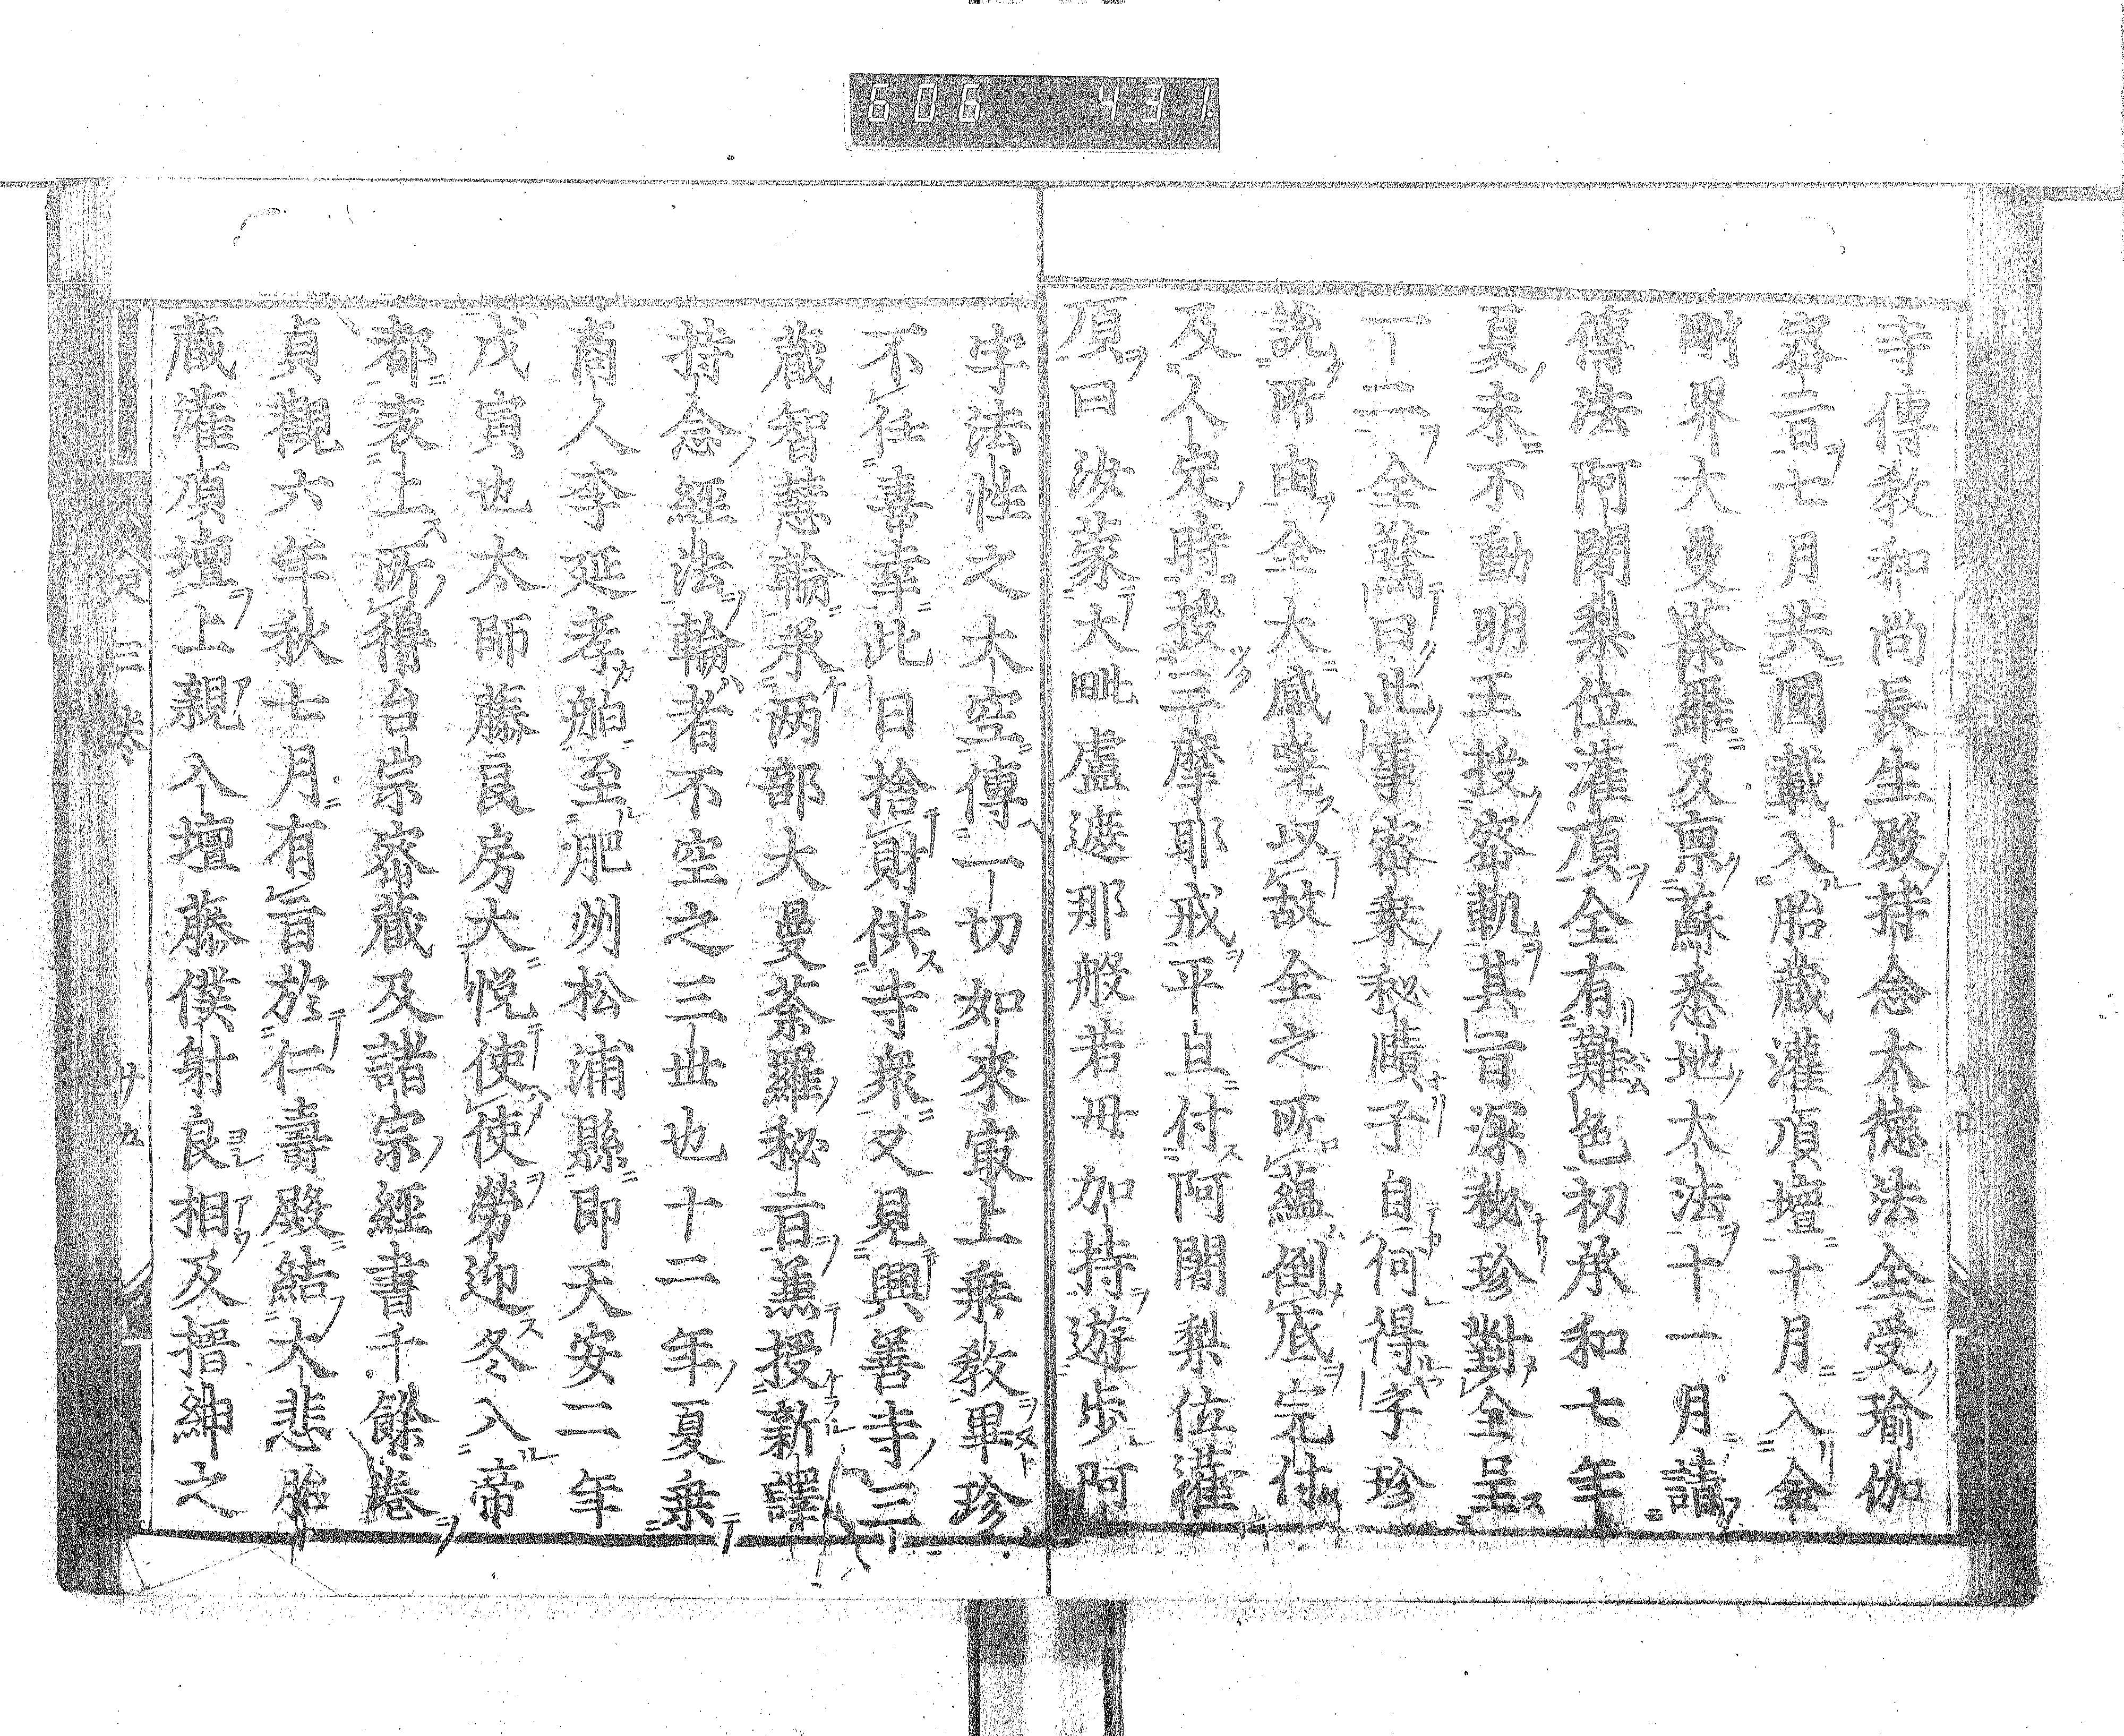 606 431
寺傳教和尚長生殿持念大徳法全受瑜伽
密旨七月共圓載入胎蔵灌頂壇十月入金
剛界大曼荼羅及禀蘇悉地大法十一月請
傳法阿闍梨位灌頂全有難色初承和七年
夏末不動明王授密軌其旨深秘珍對全呈
一二全驚曰此事密乗秘賾子自何得字珍
説所由全大感嘆以故全之所蘊倒底完付
及人定時授三摩耶戒平旦付阿闍梨位灌
頂曰汝蒙大毗盧遮那般若毋加持遊歩阿
字法性之大空傳一切如來㝡上乗教畢珍
不任喜幸此日捨財供寺衆又見興善寺三
蔵智慧輪承两部大曼荼羅秘旨兼授新譯
持念經法輪者不空之三世也十二年夏乗
商人李延孝舶至肥州松浦縣即天安二年
戊寅也太師藤良房大悦使使勞迎冬入帝
都表上所得台宗密蔵及諸宗經書千餘巻
貞觀六年秋七月有旨於仁壽殿結大悲胎
蔵灌頂壇上親入壇藤僕射良相及搢紳之
三巻
廿五